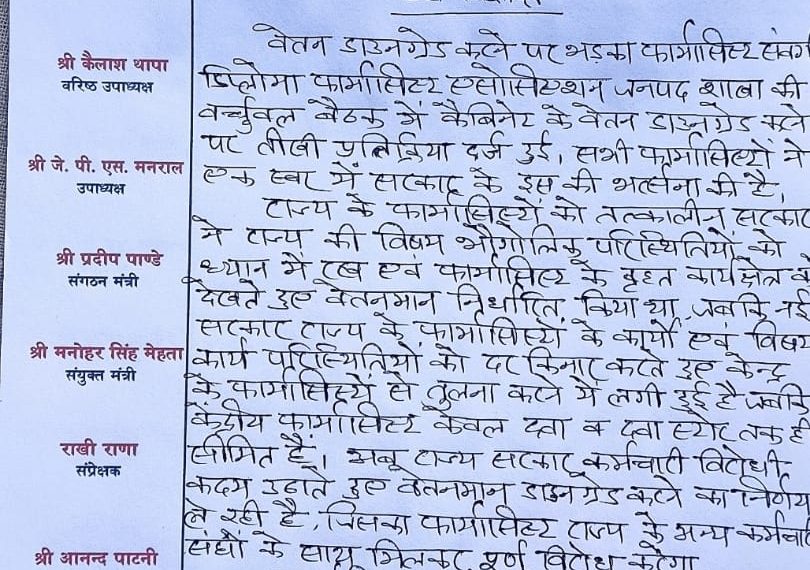 श्री कैलाश थापा
वरिष्ठ उपाध्यक्ष
श्री जे. पी. एस. मनराल
उपाध्यक्ष
श्री प्रदीप पाण्डे
संगठन मंत्री
श्री मनोहर सिंह मेहता
संयुक्त मंत्री
राखी राणा
संप्रेक्षक
श्री आनन्द पाटनी
वेतन डाउनग्रेड करने पर भड़का फार्मासिस्ट संवर्ग
डिप्लोमा फार्मासिस्ट एसोसिएशन जनपद शाखा की
वर्चुवल बैठक में कैबिनेट के वेतन डाउनग्रेड करने
पर तीखी प्रतिक्रिया दर्ज हुई, सभी फार्मासिस्टों ने
एक स्वर में सरकार के इस की भर्त्सना की है,
राज्य के फार्मासिस्टों को तत्कालीन सरकार
ने राज्य की विषम भौगोलिक परिस्थितियों को
ध्यान में रख एवं फार्मासिस्ट के वृहत कार्यक्षेत्र को
देखते हुए वेतनमान निर्धारित किया था, जबकि नई
सरकार राज्य के फार्मासिस्टों के कार्यों एवं विषम
कार्य परिस्थितियों को दर किनार करते हुए केन्द्र
के फार्मासिस्टों से तुलना करने में लगी हुई है जबकि
केंद्रीय फार्मासिस्ट केवल दवा व दवा स्टोर तक ही
सीमित हैं। अब राज्य सरकार कर्मचारी विरोधी
कदम उठाते हुए वेतनमान डाउनग्रेड करने का निर्णय
ले रही है, जिसका फार्मासिस्ट राज्य के अन्य कर्मचारी
संघों के साथ मिलकर पूर्ण विरोध करेगा